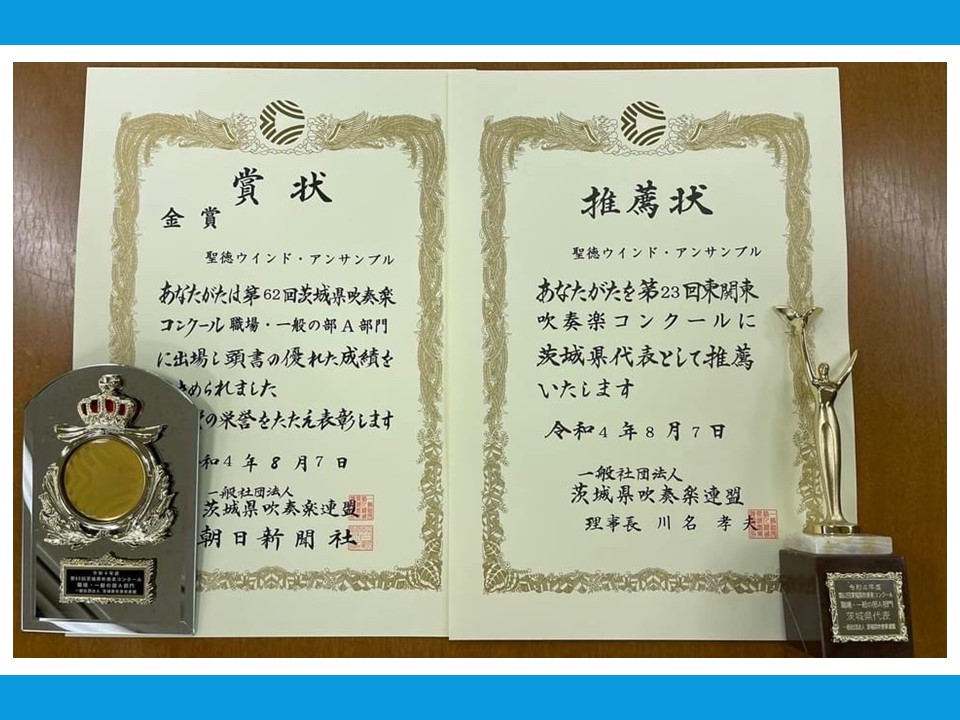 賞状
金賞
聖徳ウインド・アンサンブル
あなたがたは第62回茨城県吹奏楽
コンクール職場・一般の部A部門
に出場し頭書の優れた成績を
められました
の栄誉をたたえ表彰します
和4年8月7日
一般社団法人
茨城県吹奏楽連盟
朝日新聞社
推薦状
聖徳ウインド・アンサンブル
あなたがたを第23回東関東
吹奏楽コンクールに
茨城県代表として推薦
いたします
令和4年8月7日
一般社団法人
茨城県吹奏楽連盟
理事長 川名孝夫
令和4年度
第62回茨城県吹奏楽コンクール
職場・一般の部A部門
一般社団法人 茨城県吹奏楽連盟
令和4年度
第62回茨城県吹奏楽コンクール
職場・一般の部A部門
茨城県代表
一般社団法人 茨城県吹奏楽連盟